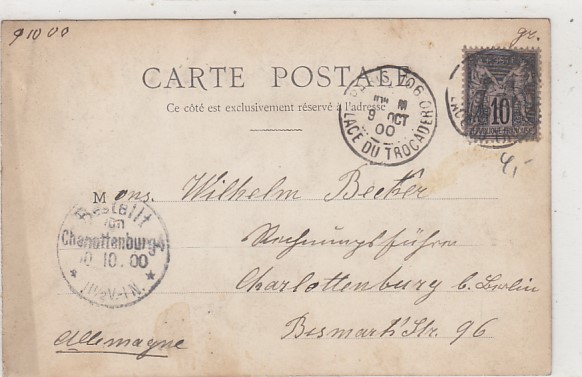 9 10 00
gr.
CARTE POSTALE
Ce côté est exclusivement réservé à l'adresse
PARIS 106
9 OCT
00
PLACE DU TROCADERO
10
4,-
Mons. Wilhelm Becker
Rechnungsführer
Charlottenburg b. Berlin
Bismark Str. 96
Allemagne
Bestellt
von
Charlottenburg 4
10.10.00